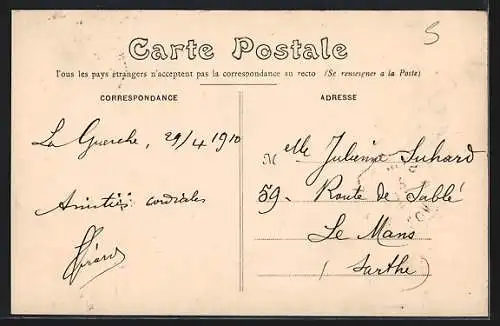 5
Carte Postale
Tous les pays étrangers n'acceptent pas la correspondance au recto (Se renseigner à la Poste)
CORRESPONDANCE
ADRESSE
La Guerche, 29/4 1910
Amitiés cordiales
Girard
Melle Julienne Suhard
59. Route de Sablé
Le Mans
(Sarthe)